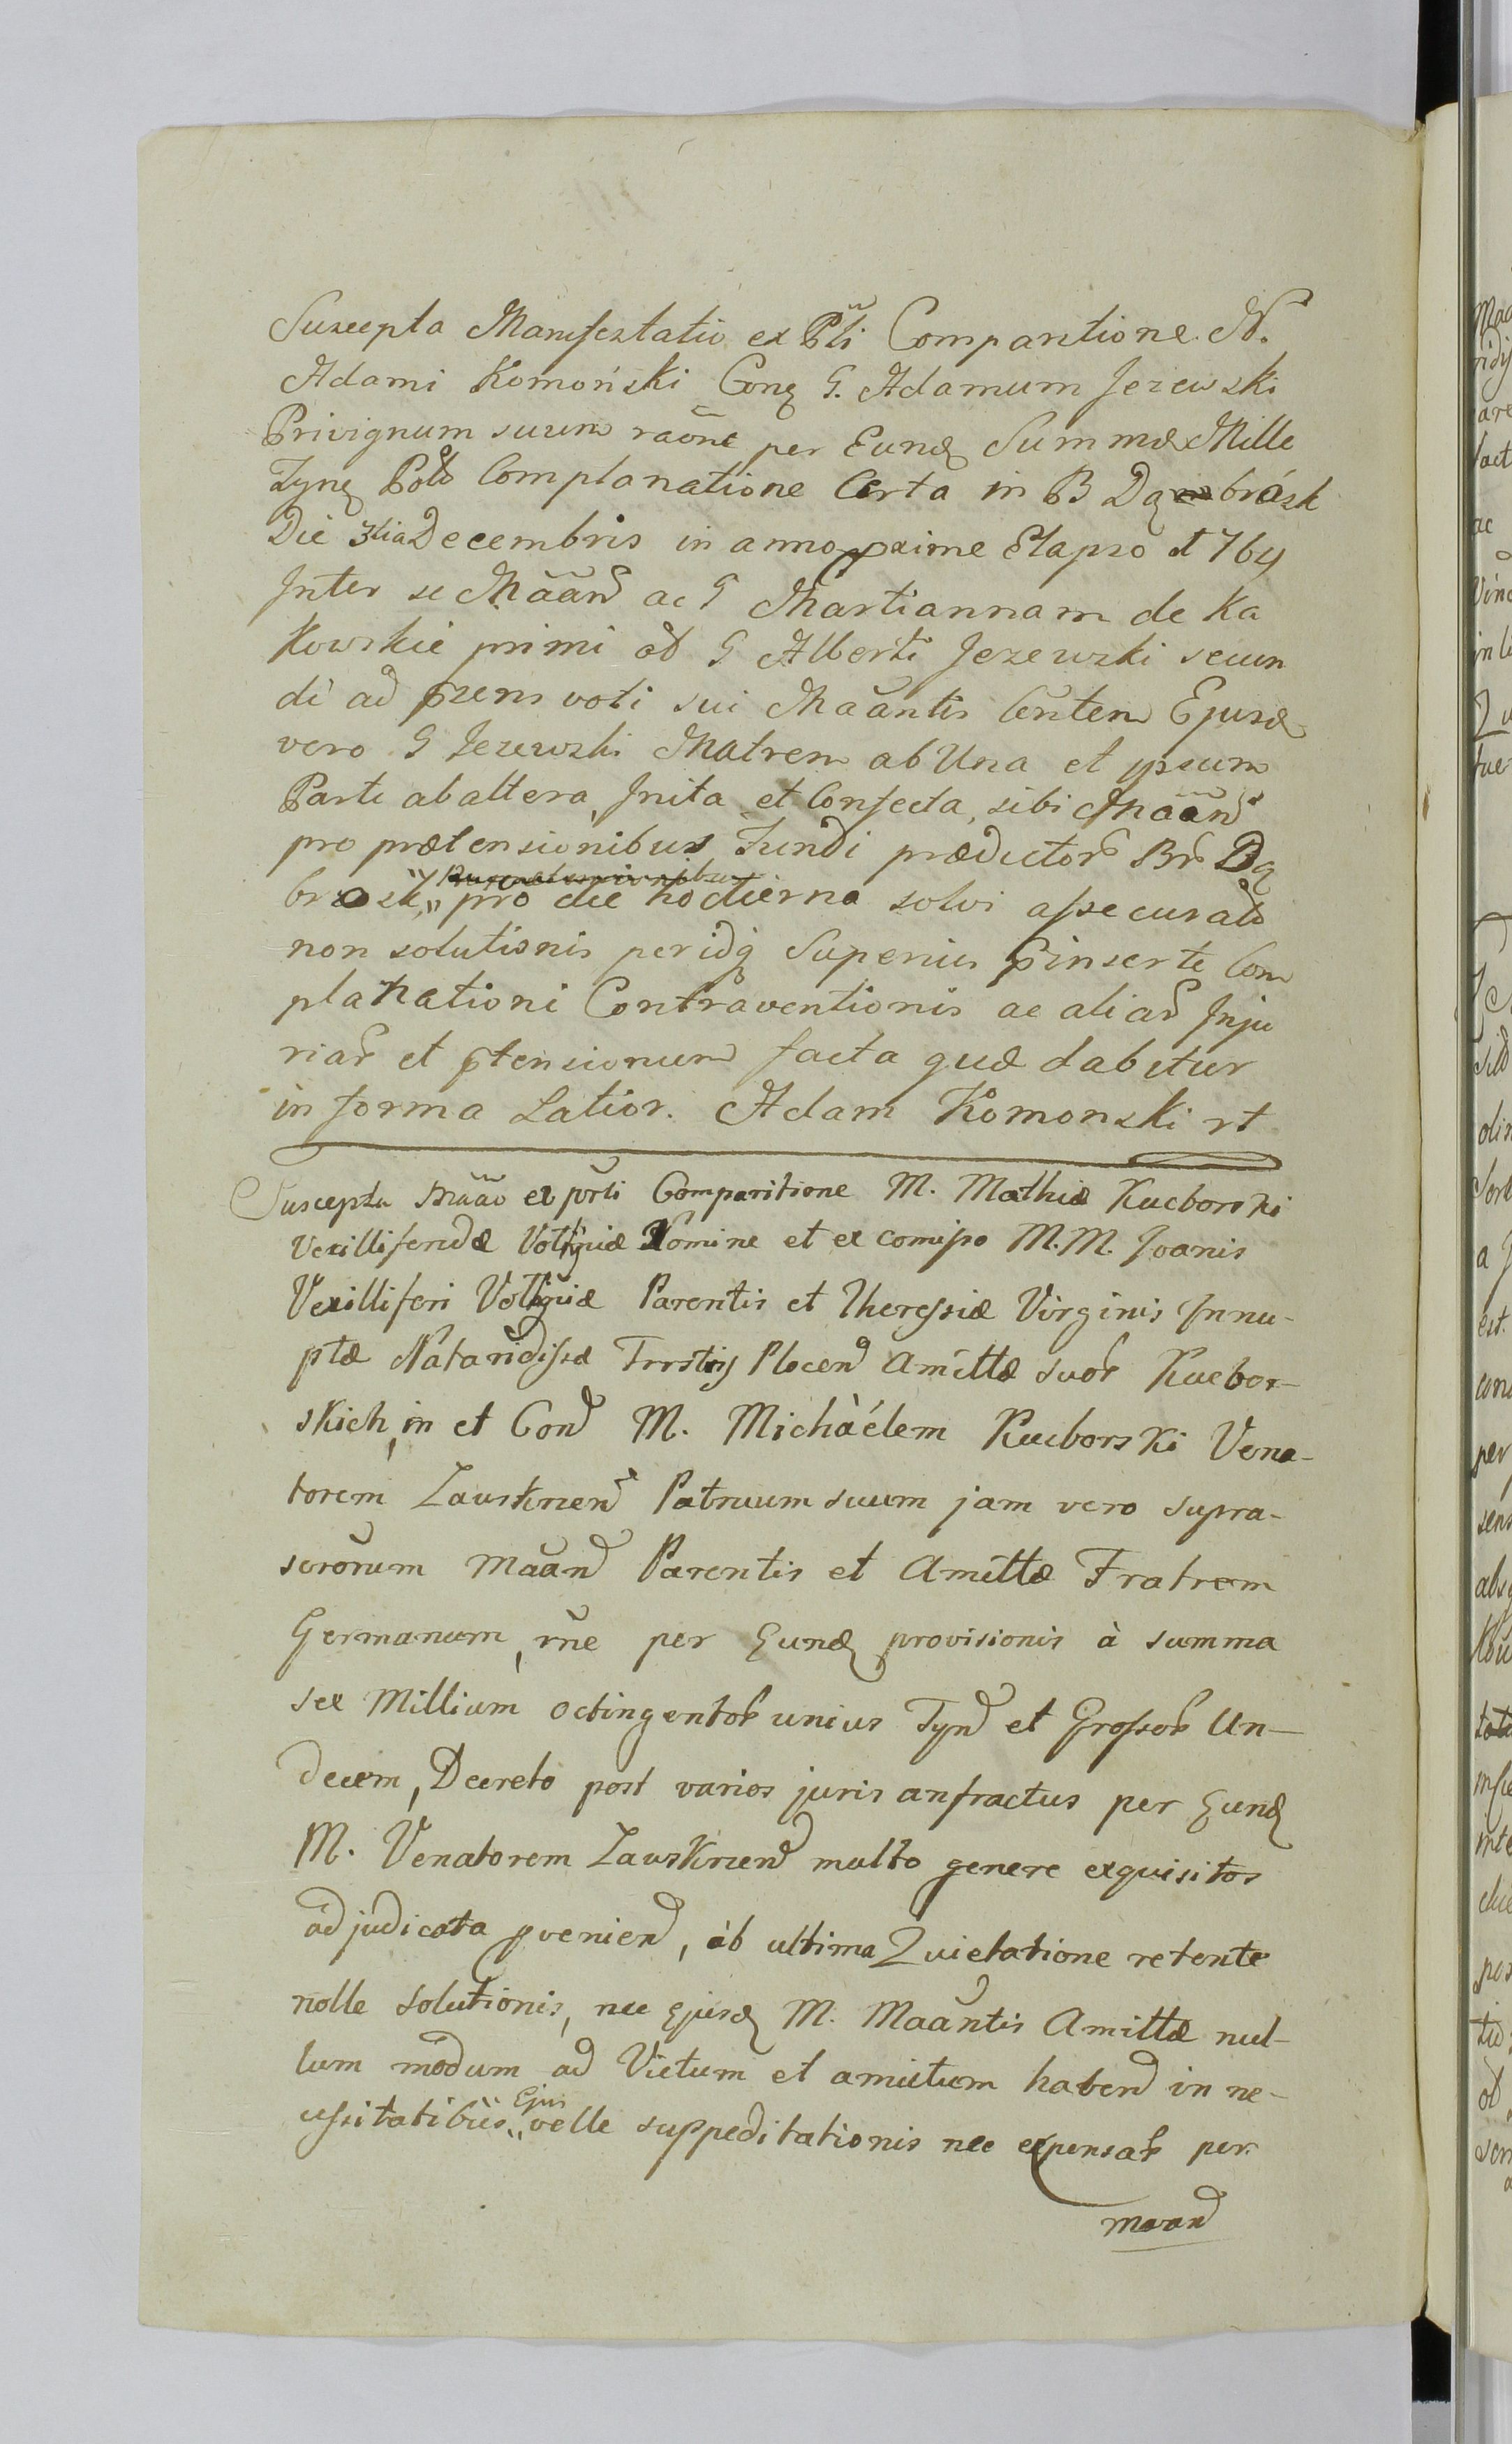 Suscepta Manifestatio ex Pṽli Comparitione N.
Adami Komoński Conꝗ G. Adamum Jezewski
Privignum suum raõne per Eundꝫ Summæ Mille
Tynꝗ Polô Complanatione Certa in B Dąbrósk
Die 3tia Decembris in anno proxime Elapso 1764
Inter se Mããnd ac G Martiannam de Ka
kowskie primi olô G Alberti Jezewski secun
di ad præsens voti sui Maãntis Contem Ejusd
vero G Jezewski Matrem ab Una et ipsum
Parte ab altera, Inita et Confecta, sibi Mããnd
pro prætensionibus Fundi prædictorȝ Brȝ Dą
brosk,, pro die hodierna solvi assecuratæ
non solutionis per idꝗ Superius inserte Com
planationi Contraventionis ac aliarȝ Inju
riarȝ et ptensionum facta quæ dabitur
in forma Latior. Adam Komonski rt
Suscepta Mããõ ex pṽrli Comparitione M. Mathiæ Kucborski
Vexilliferidæ Nomine et ex comisso M.M. Joanis
Vexilliferi Parentis et Theressiæ Virginis Innu-
ptæ Notaridissæ Trrstris Plocend Amittæ suorȝ Kucbor-
skich, in et Cond M. Michàélem Kucborski Vena-
torem Zauskrzend Patruum suum jam vero supra-
scrõrum Maãnd Parentis et Amittæ Fratrem
Germanum, rñe per Eundꝫ provisionis à summa
sex Millium octingentorȝ unius Tynd et Grossorȝ Un-
decem, Decreto post varios juris anfractus per Eundꝫ
M. Venatorem Zauskrzend multo genere exquisitos
adjudicata pveniend, ab ultima Quietatione retente
nolle solutionis, nec Ejusdꝫ M. Maãntis Amittæ nul-
lum modum ad Victum et amictum habend in ne-
cessitatibus,, Ejus velle suppeditationis nec expensarȝ per
maand